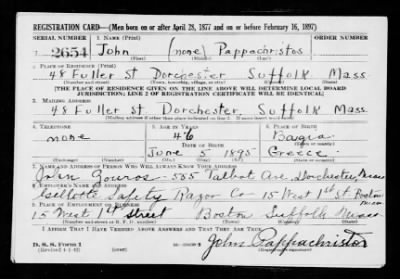 REGISTRATION CARD—(Men born on or after April 28, 1877 and on or before February 16, 1897)
SERIAL NUMBER 1. NAME (Print) ORDER NUMBER
2654 John (none) Pappachristos
(First) (Middle) (Last)
2. PLACE OF RESIDENCE (Print)
48 Fuller St Dorchester Suffolk Mass.
(Number and street) (Town, township, village, or city) (County) (State)
[THE PLACE OF RESIDENCE GIVEN ON THE LINE ABOVE WILL DETERMINE LOCAL BOARD
JURISDICTION; LINE 2 OF REGISTRATION CERTIFICATE WILL BE IDENTICAL]
3. MAILING ADDRESS
48 Fuller St Dorchester, Suffolk Mass.
[Mailing address if other than place indicated on line 2. If same insert word same]
4. TELEPHONE 5. AGE IN YEARS 6. PLACE OF BIRTH
none 46
DATE OF BIRTH
June 5 1895 Greece
7. NAME AND ADDRESS OF PERSON WHO WILL ALWAYS KNOW YOUR ADDRESS
John Gouros - 535 Talbot Ave. Dorchester Mass
8. EMPLOYER'S NAME AND ADDRESS
Gillette Safety Razor Co 15 West 1st St Boston
9. PLACE OF EMPLOYMENT OR BUSINESS
15 West 1st Street Boston Suffolk Mass
I AFFIRM THAT I HAVE VERIFIED ABOVE ANSWERS AND THAT THEY ARE TRUE.
D. S. S. Form 1
John Pappachristos